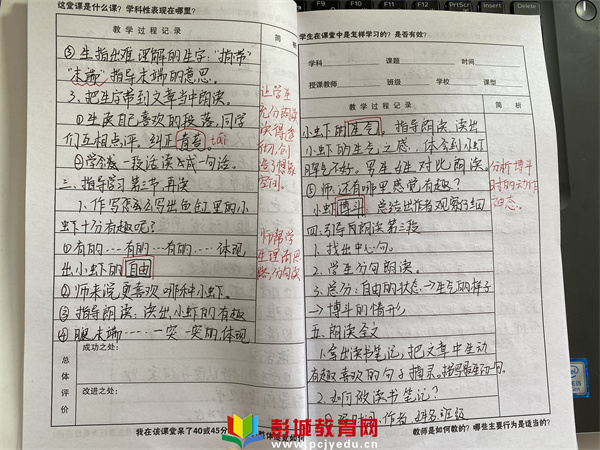 这堂课是什么课？学科性表现在哪里？
教学过程记录
简 析
③生指出难理解的生字："指带"
"末端"指导末端的意思。
3、把生字带到文章当中朗读。
①生读自己喜欢的段落，同学
们互相点评，纠正青苔 tái
②学会把一段话读成一句话。
三、指导学习第二节，再读
1.作写怎么写出鱼缸里的小
虾十分有趣呢？
①有的……有的…有的…体现
出小虾的自由
②师来说更喜欢哪种小虾。
③指导朗读：读出小虾的有趣
④腿末端……一突一突的，体现
让学生
充分朗读
读得透
彻，创
造了想象
空间。
师帮学
生理清思
路，分句读
总体评价
成功之处：
改进之处：
我在该课堂呆了40或45分
学生在课堂中是怎样学习的？是否有效？
学科
课题
时间
授课教师
班级
学校
课型
教学过程记录
简 析
小虾的生气。指导朗读，读出
小虾的生气之感，体会到小虾
脾气不好。男生女生对比朗读。
⑤师：还有哪里感觉有趣？
小虾搏斗。总结出作者观察仔细
四、引导自朗读第三段
1.找出中心句。
2.学生分句朗读。
3.总分：自由的状态→生气的样子
→搏斗的情形
五、朗读全文
1.拿出读书笔记，把文章中生动
有趣喜欢的句子摘录。
2.如何做读书笔记？
分析搏斗
时的动作
教师是如何教的？哪些主要行为是适当的？
彭城教育网
www.pcjyedu.cn